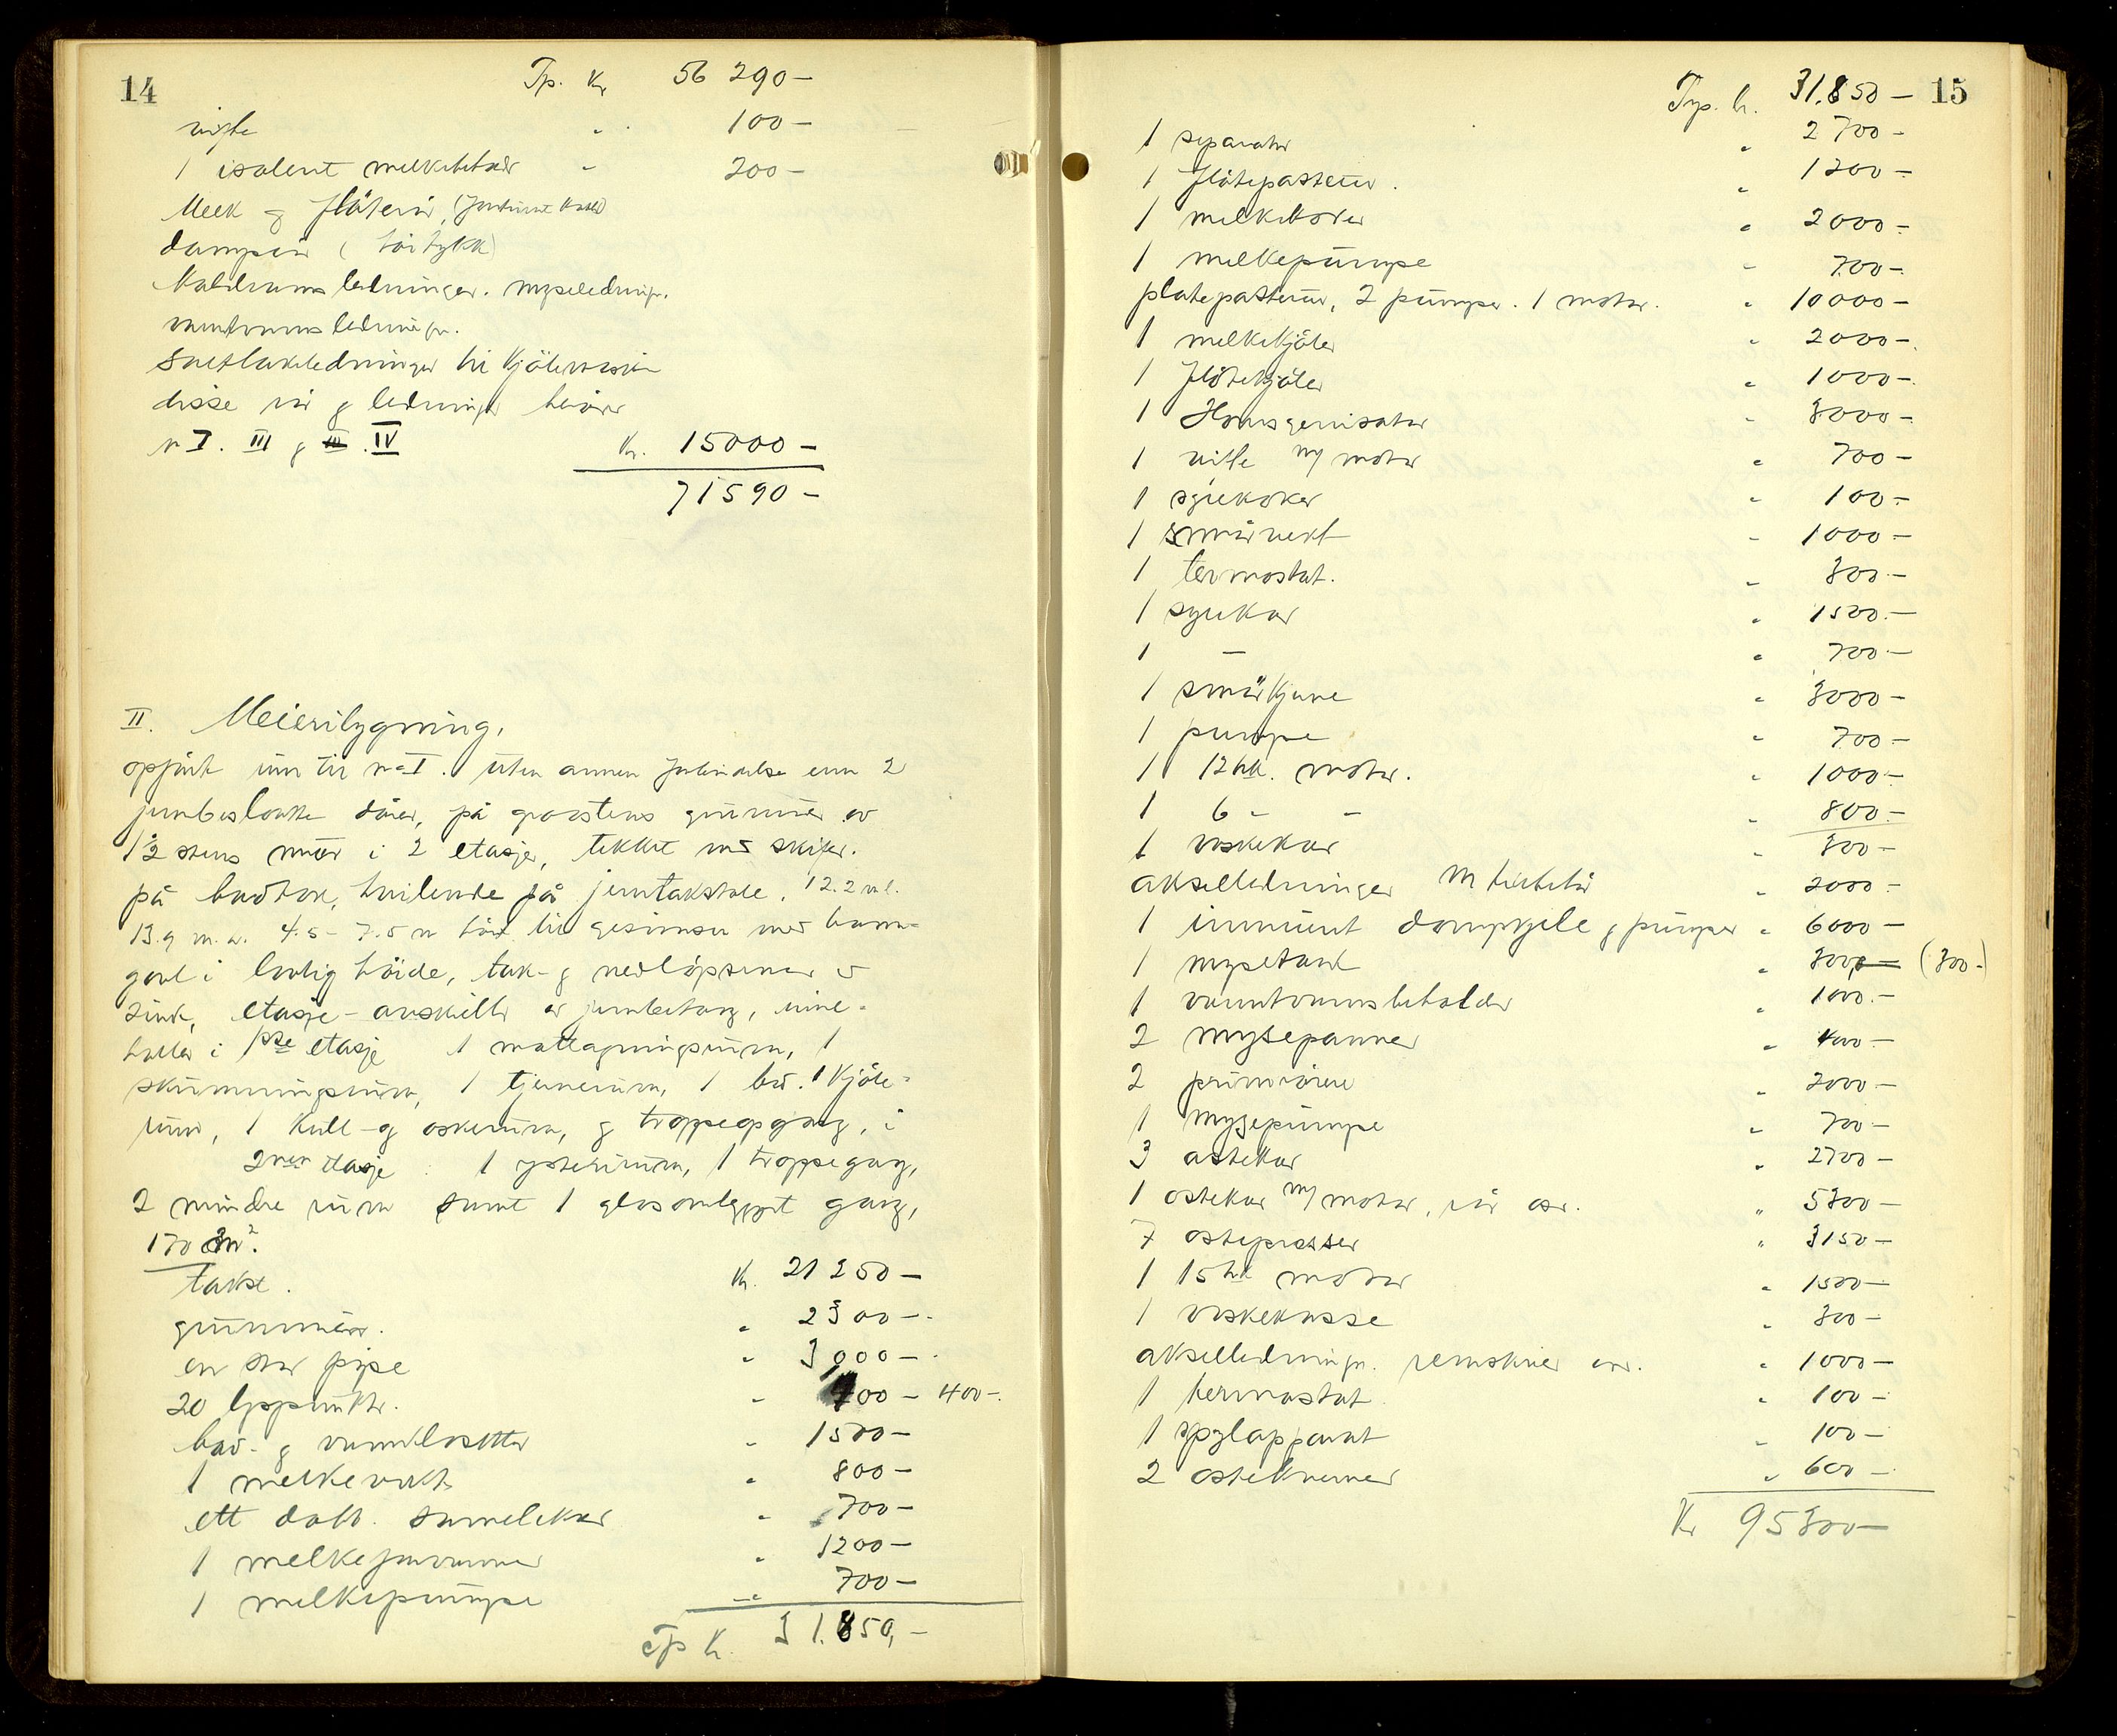 14
Tp. Kr 56 290 –
vifte „ 100 –
1 isolert melkebeholder „ 200 –
Melk og fløterør, (fortinnet kobber)
damprør (høitrykk)
Kaldtvannsledninger. myseledninger.
varmtvannsledninger.
Saltlakeledninger til kjølemaskin
disse rør og ledninger hører
n I. III og III. IV Kr. 15000 –
71590 –
II. Meieribygning,
opført inn til nr I. uten annen forbindelse enn 2
jernbeslåtte dører, på gråstens grunnmur av
1½ stens mur i 2 etasjer, tekket med skifer.
på bordtak, hvilende på jerntakstole. 12.2 m l.
13.9 m. br. 4.5 – 7.5 m høi til gesimsen med brann-
gavl i lovlig høide, tak- og nedløpsrenner av
sink, etasje-avskiller av jernbetong, inne-
holder i 1ste etasje 1 mottagningsrum, 1
skummingsrum, 1 kjernerum, 1 bod. 1 kjøle-
rum, 1 kull- og oskerum, og trappeopgang, i
2nen etasje: 1 ysterirum, 1 trappegang,
2 mindre rum samt 1 glasombygget gang,
170 m².
takst. Kr. 21 250 –
grunnmur. „ 2300 –
en stor pipe „ 3000 –
20 lyspunkter. „ 400 – 400 –
bad- og vannklosetter „ 1500 –
1 melkevekt „ 800 –
ett dobb. samlekar „ 700 –
1 melkeforvarmer „ 1200 –
1 melkepumpe „ 700 –
Tp Kr. 31.850, –
15
Tp. Kr. 31.850 –
1 separator „ 2 700 –
1 fløtepasteur. „ 1200 –
1 melkekoker „ 2000 –
1 melkepumpe „ 700 –
platepasteur, 2 pumper. 1 motor. „ 10000 –
1 melkekjøler „ 2000 –
1 fløtekjøler „ 1000 –
1 Homogenisator „ 3000 –
1 vifte m/ motor „ 700 –
1 syrekoker „ 100 –
1 smørvekt „ 1000 –
1 termostat. „ 300 –
1 syrekar „ 1500 –
1 – „ 700 –
1 smørkjerne „ 3000 –
1 pumpe „ 700 –
1 12 hk. motor. „ 1000 –
1 6 – – „ 800 –
1 vaskekar „ 300 –
akselledninger m tilbehør „ 2000 –
1 innmurt dampkjele og pumper „ 6000 –
1 mysetank „ 300 – (300 –)
1 varmtvannsbeholder „ 1000 –
2 mysepanner „ 400 –
2 primrørere „ 2000 –
1 mysepumpe „ 700 –
3 ostekar „ 2700 –
1 ostekar m/ motor, rør osv. „ 5300 –
7 ostepresser „ 3150 –
1 15 hk motor „ 1500 –
1 vaskekasse „ 300 –
akselledninger. remskiver osv. „ 1000 –
1 termostat „ 100 –
1 spylapparat „ 100 –
2 ostekverner „ 600 –
Kr 95300 –